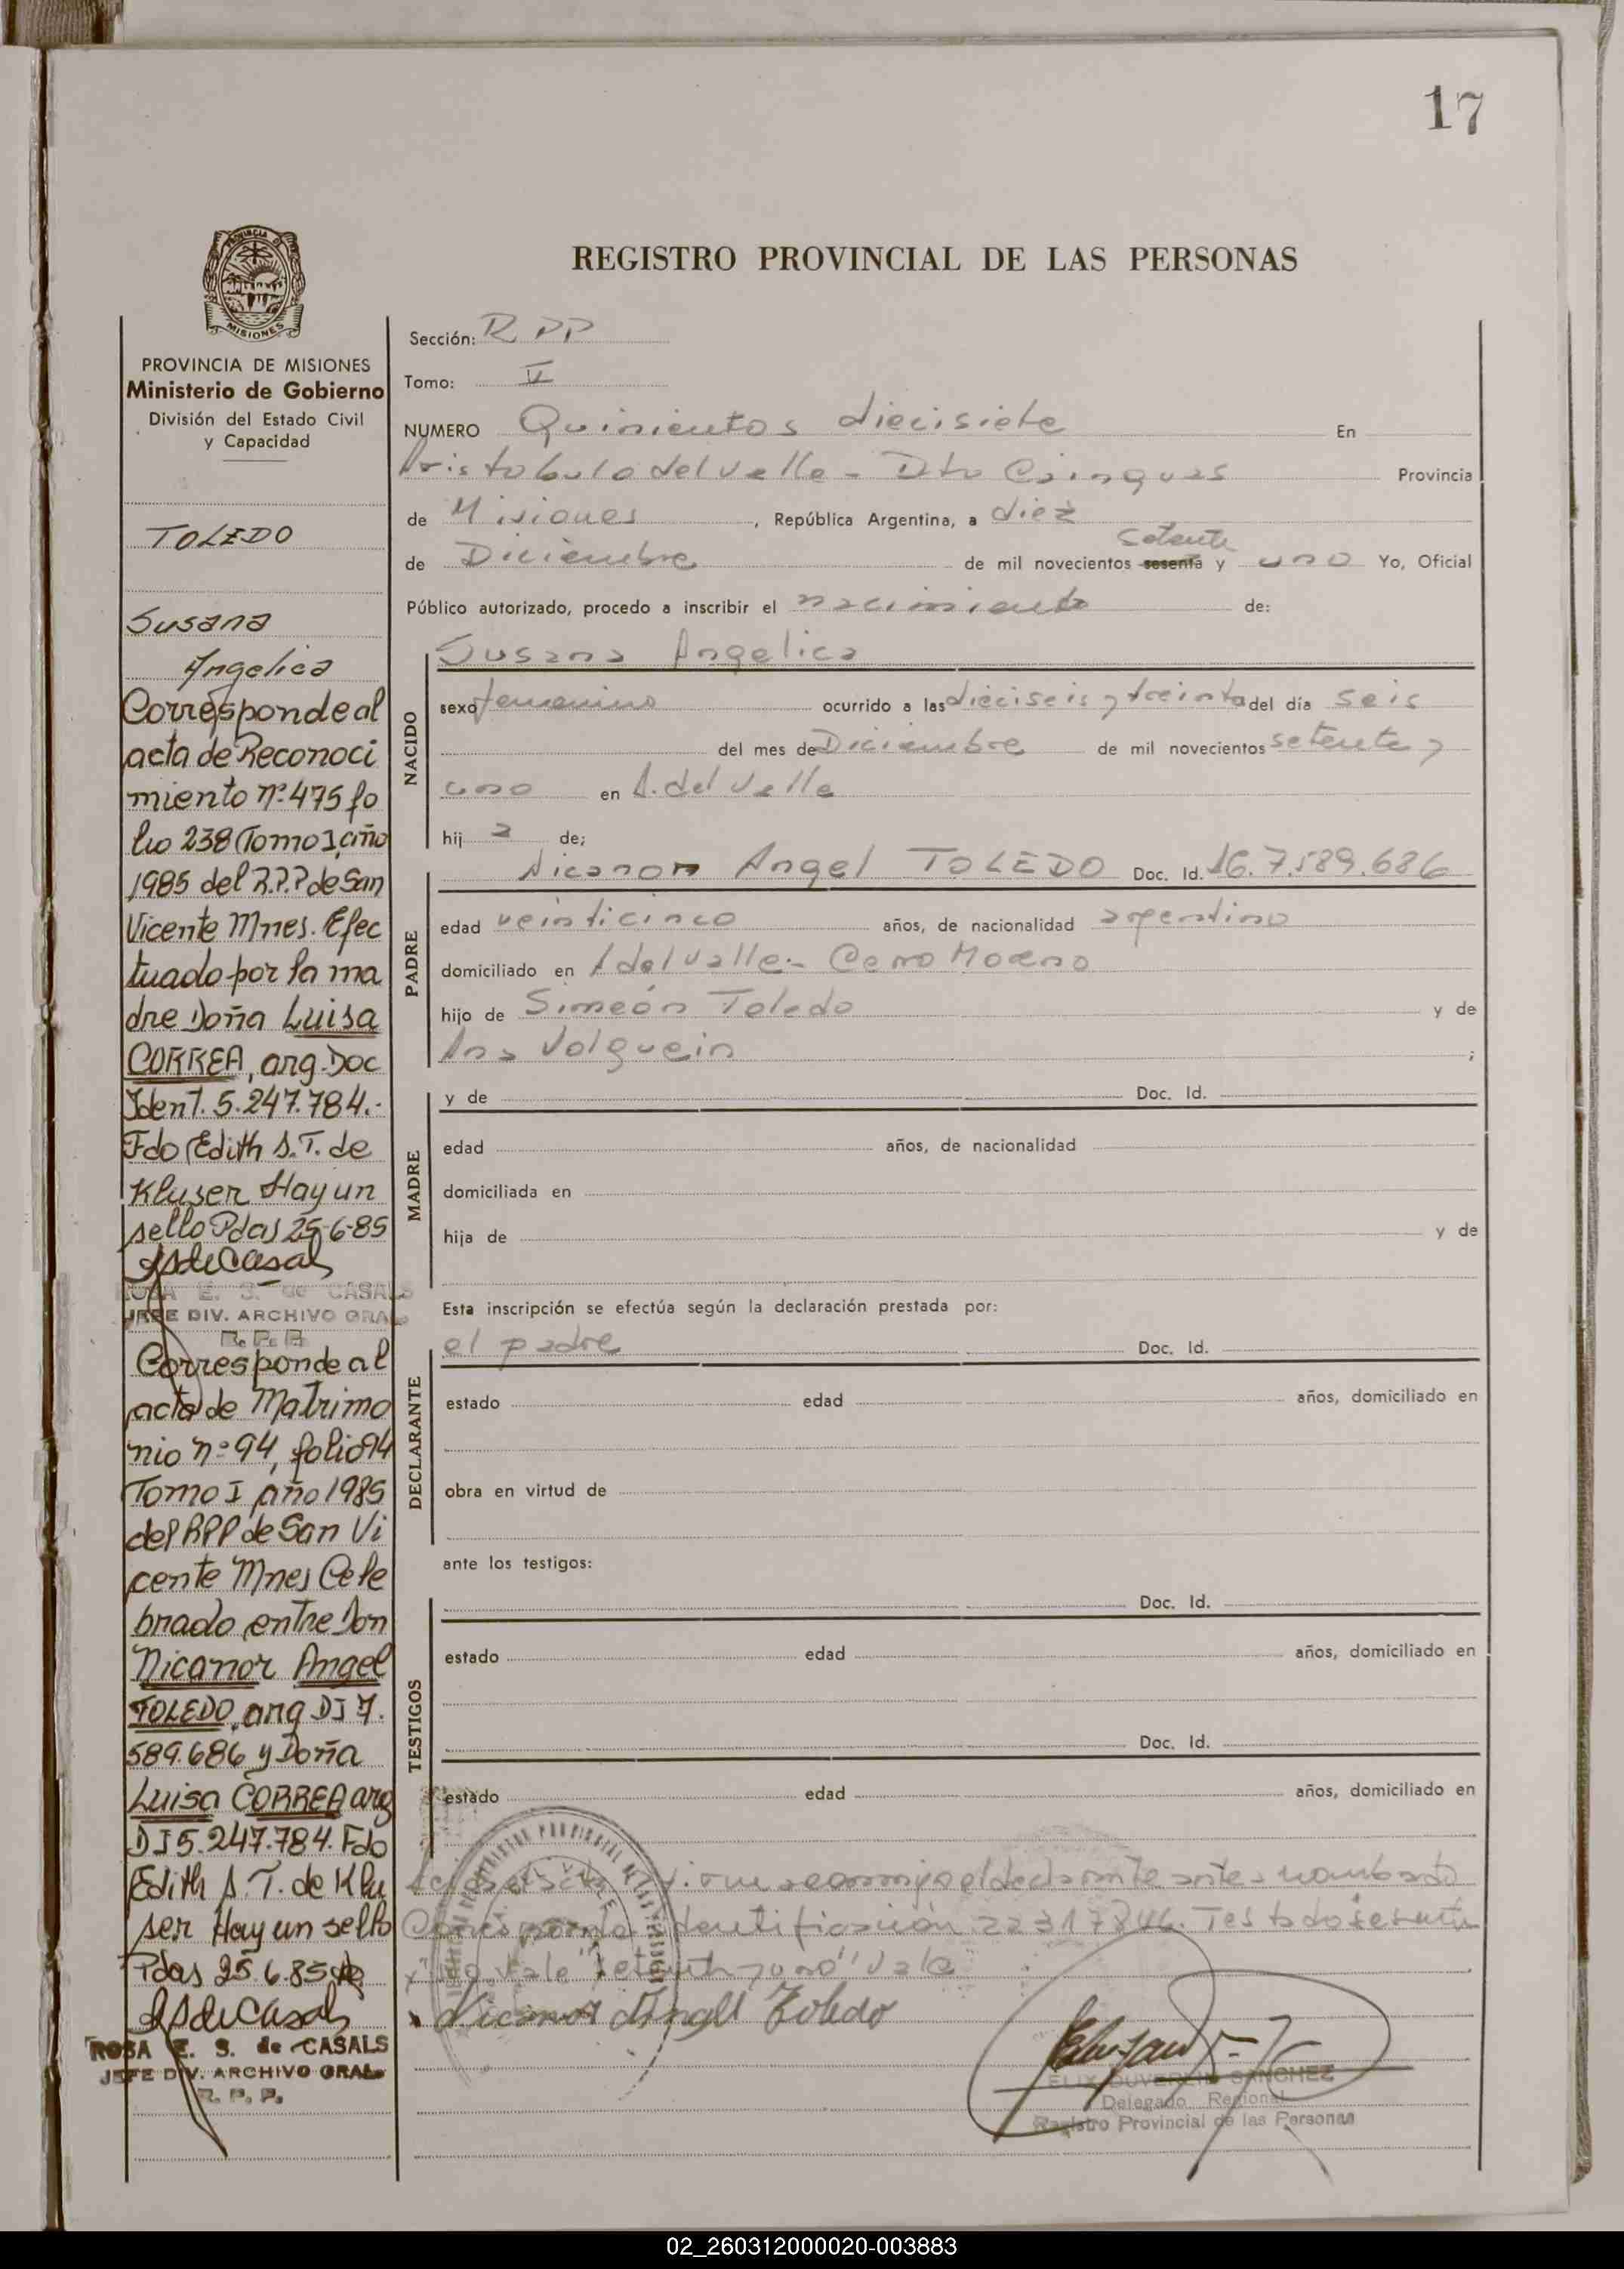 17
PROVINCIA DE
MISIONES
PROVINCIA DE MISIONES
Ministerio de Gobierno
División del Estado Civil
y Capacidad
TOLEDO
Susana
Angelica
Corresponde al
acta de Reconoci
miento nº 475 fo
lio 238 Tomo I, año
1985 del R.P.P de San
Vicente Mnes. Efec
tuado por la ma
dre Doña Luisa
CORREA, arg. Doc
Ident. 5.247.784.-
Fdo Edith S.T. de
Kluser Hay un
sello Pdas 25-6-85
RSdeCasals
ROSA E. S. de CASALS
JEFE DIV. ARCHIVO GRAL.
R. P. P.
Corresponde al
acta de Matrimo
nio nº 94, folio 94
Tomo I año 1985
del RPP de San Vi
cente Mnes Cele
brado entre Don
Nicanor Angel
TOLEDO, arg DI 7.
589.686 y Doña
Luisa CORREA arg
DI 5.247.784. Fdo
Edith S. T. de Klu
ser Hay un sello
Pdas 25.6.85
RSdeCasals
ROSA E. S. de CASALS
JEFE DIV. ARCHIVO GRAL.
R. P. P.
REGISTRO PROVINCIAL DE LAS PERSONAS
Sección: RPP
Tomo: V
NUMERO Quinientos diecisiete En
Aristobulo del valle - Dto Cainguas Provincia
de Misiones, República Argentina, a diez
setenta
de Diciembre de mil novecientos sesenta y uno Yo, Oficial
Público autorizado, procedo a inscribir el nacimiento de:
Susana Angelica
NACIDO
sexo femenino ocurrido a las dieciseis y treinta del día seis
del mes de Diciembre de mil novecientos setenta y
uno en A. del Valle
hij a de;
PADRE
Nicanor Angel TOLEDO Doc. Id. 16.7.589.686
edad veinticinco años, de nacionalidad argentino
domiciliado en A del Valle - Cerro Moreno
hijo de Simeón Toledo y de
Ana Volguein ;
MADRE
y de Doc. Id.
edad años, de nacionalidad
domiciliada en
hija de y de
Esta inscripción se efectúa según la declaración prestada por:
DECLARANTE
el padre Doc. Id.
estado edad años, domiciliado en
obra en virtud de
ante los testigos:
TESTIGOS
Doc. Id.
estado edad años, domiciliado en
Doc. Id.
estado edad años, domiciliado en
el declarante antes nombrado
Corresponde Identificación 22317846. Testado sesenta
vale "setenta y uno" vale
Nicanor Angel Toledo
SANCHEZ
Delegado Regional
Registro Provincial de las Personas
02_260312000020-003883